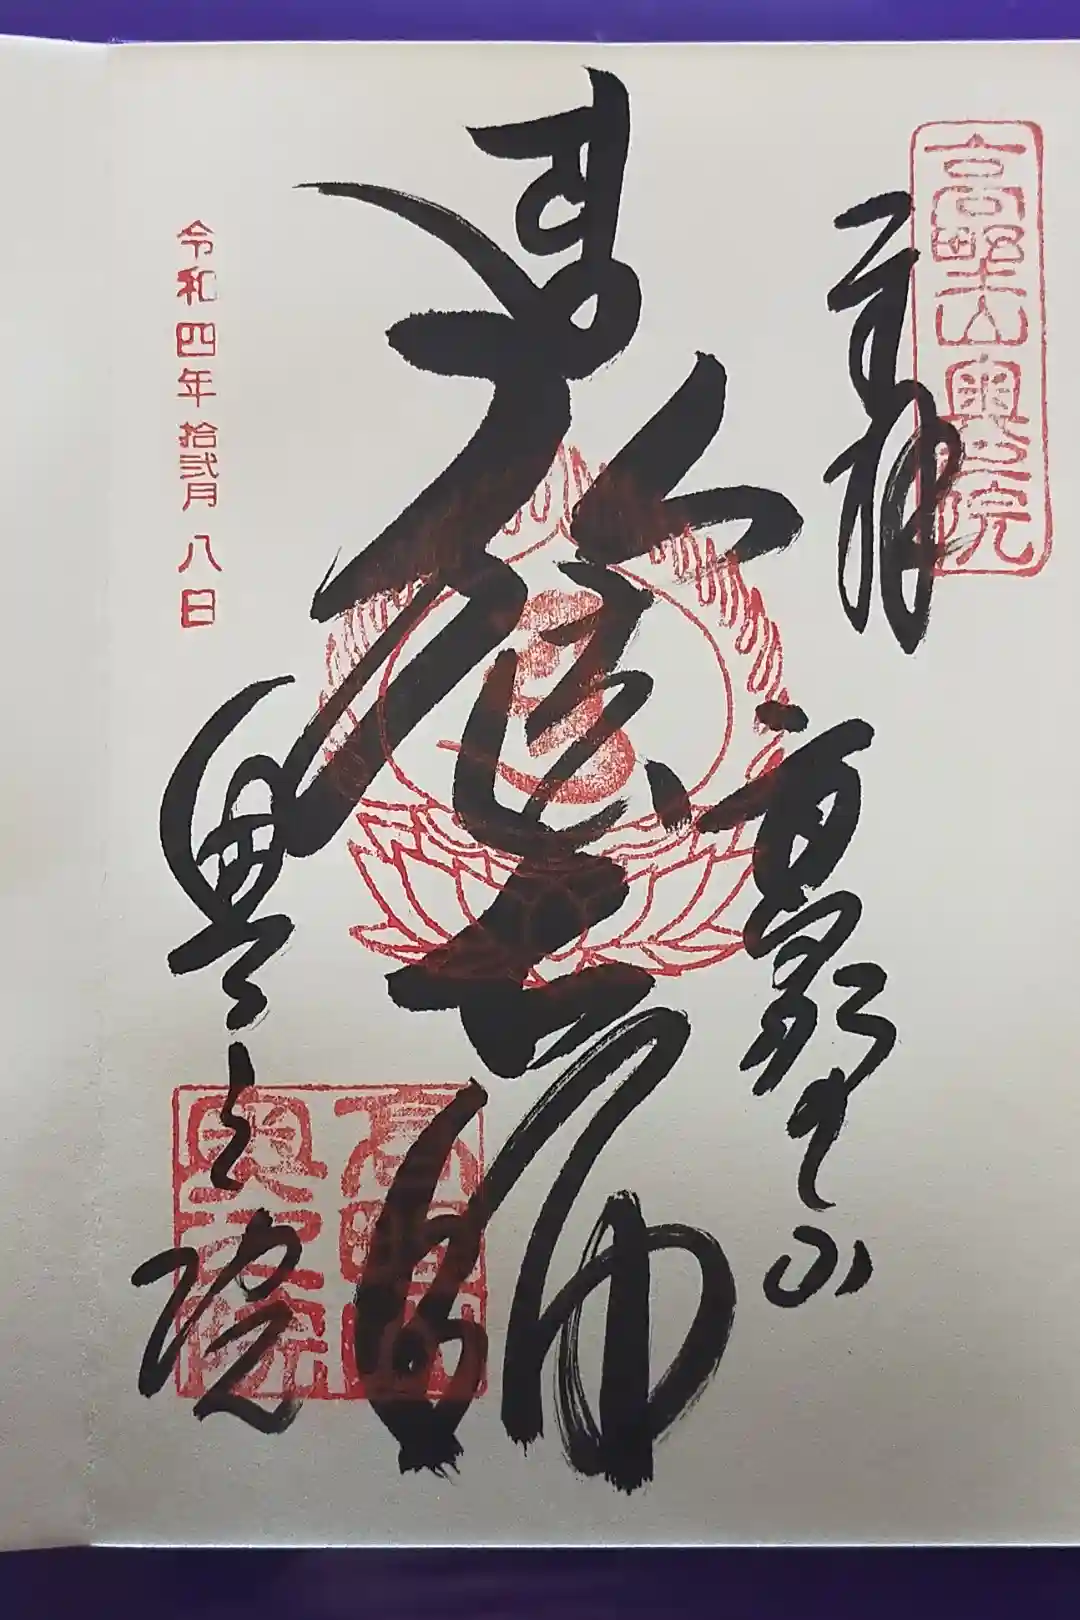 高野山奥之院
奉拝
高野山
弘法大師
令和四年拾弐月八日
奥之院
高野山
奥之院